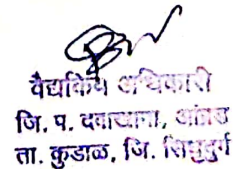 वैद्यकिय अधिकारी
जि. प. दवाखाना, आंब्रड
ता. कुडाळ, जि. सिंधुदुर्ग